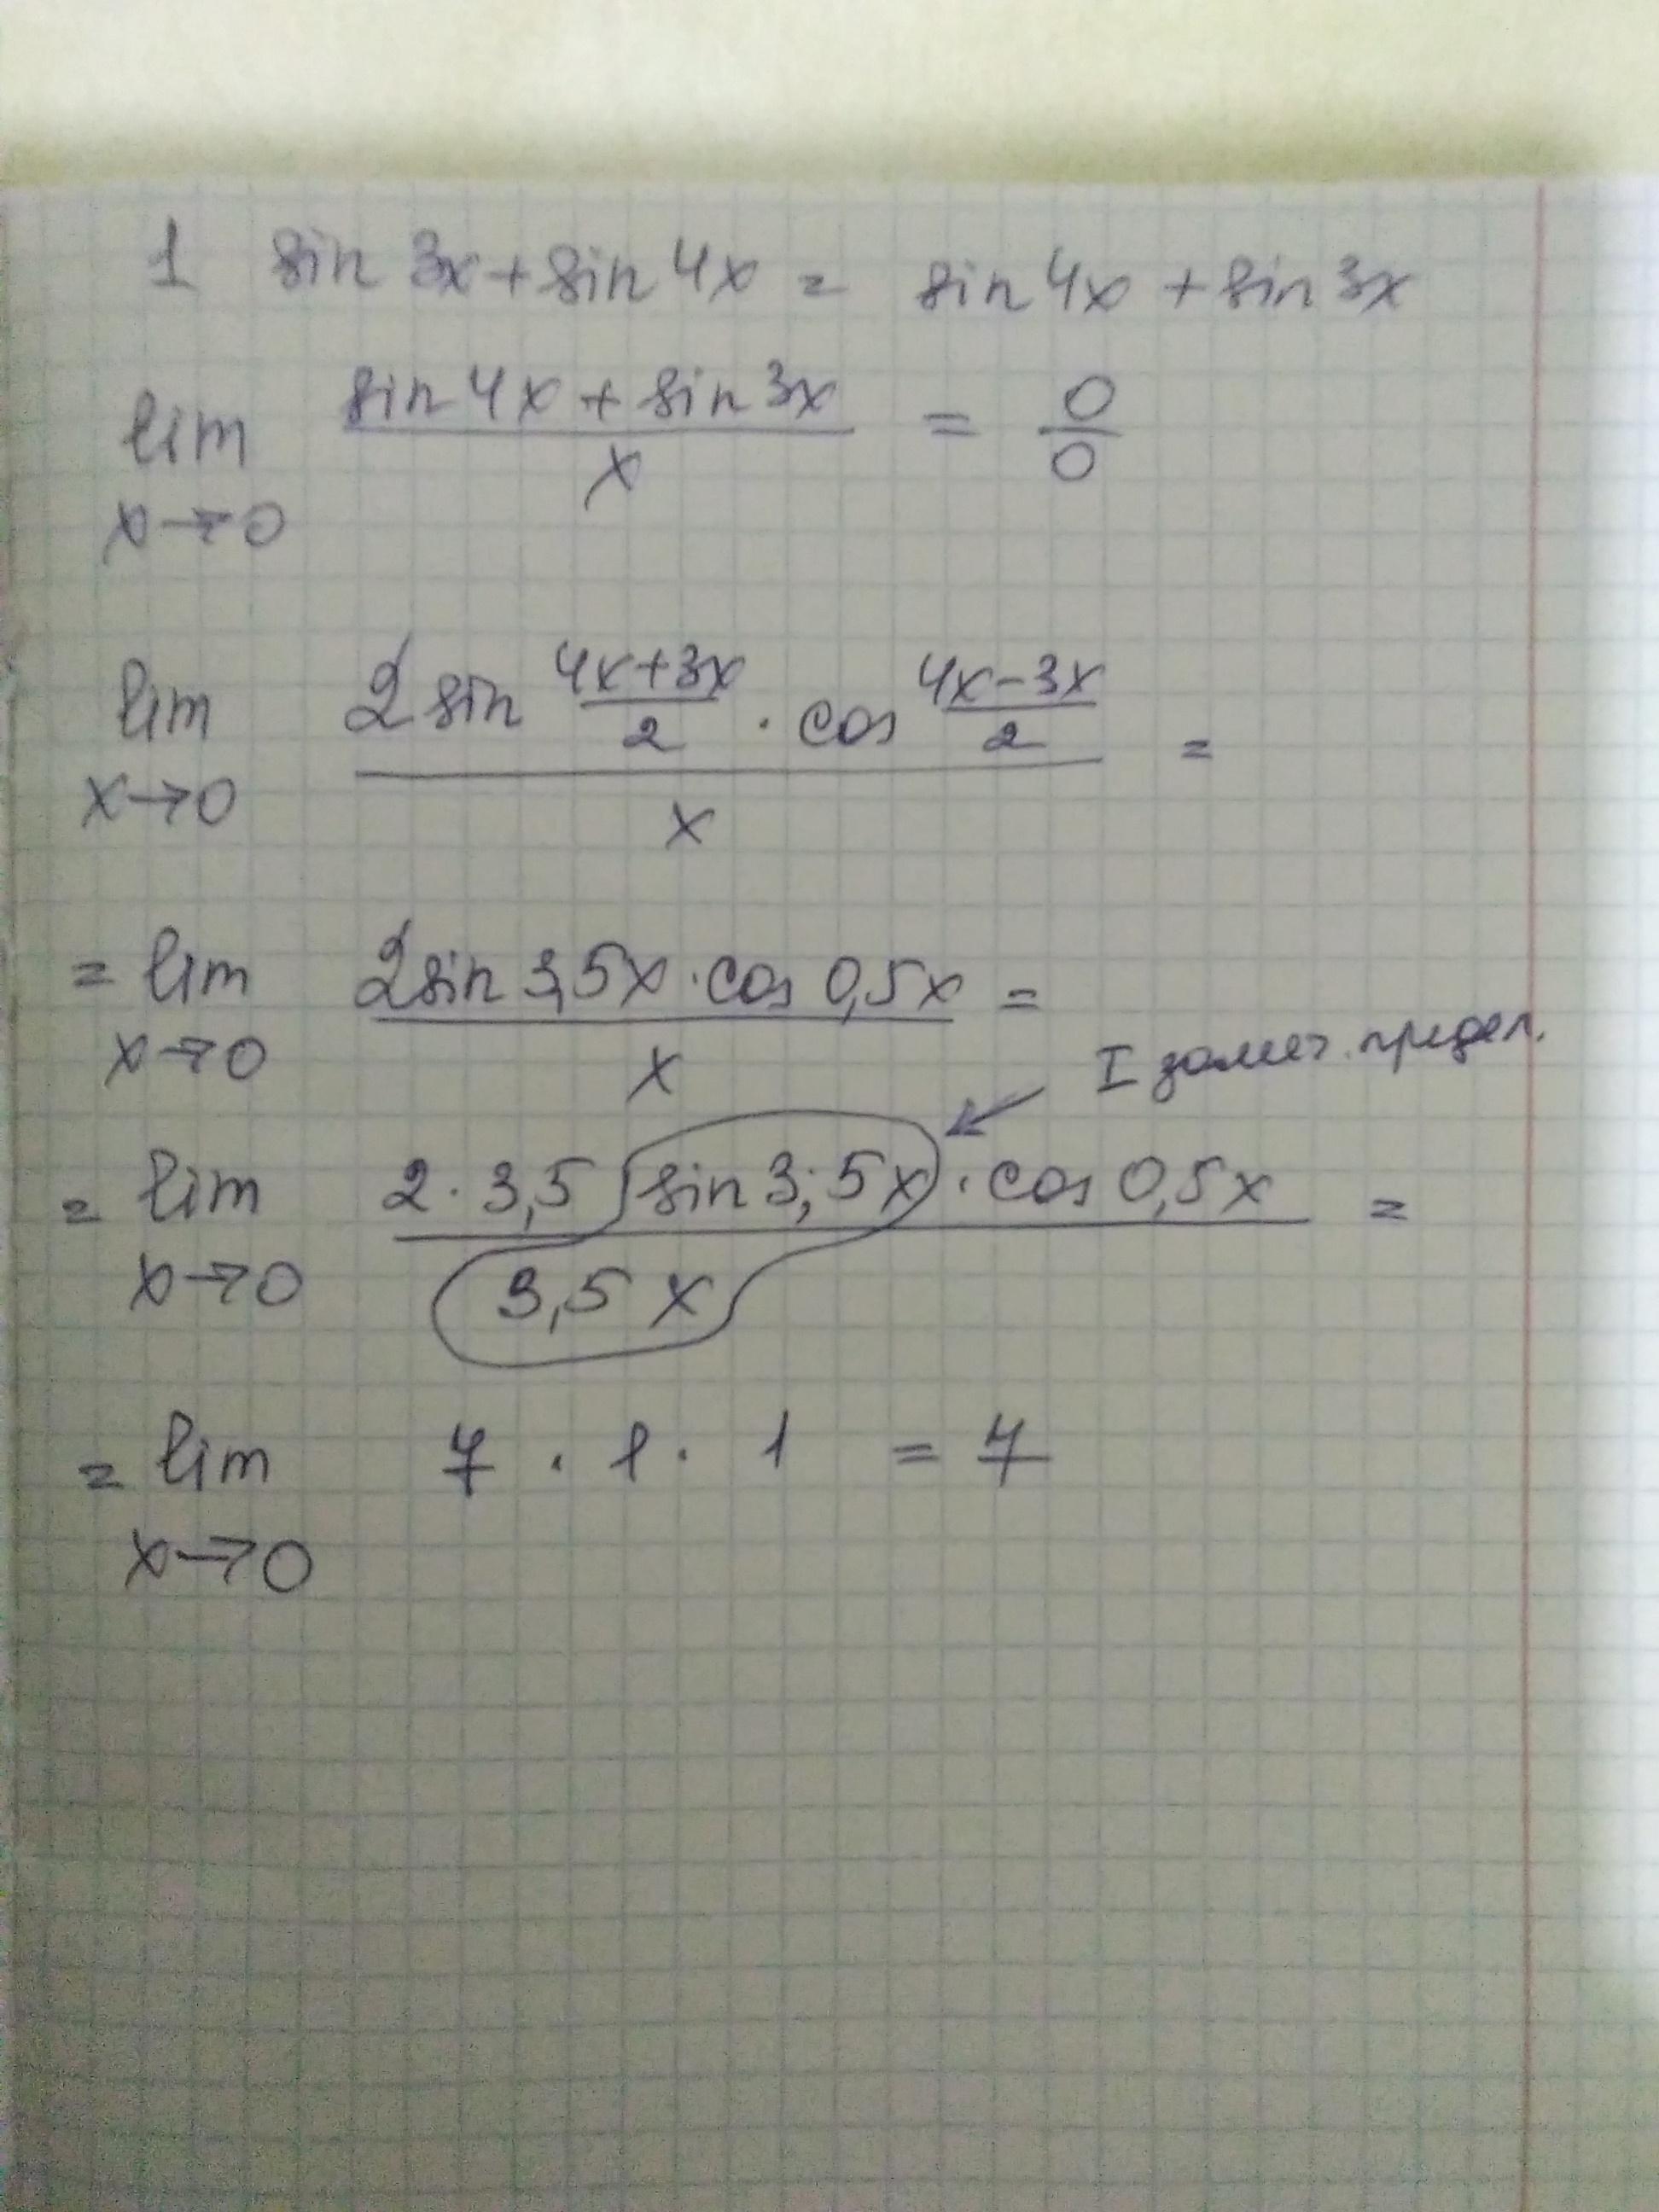 1 sin 3x + sin 4x = sin 4x + sin 3x
lim x→0 (sin 4x + sin 3x)/x = 0/0
lim x→0 (2 sin (4x+3x)/2 · cos (4x−3x)/2)/x =
= lim x→0 (2 sin 3,5x · cos 0,5x)/x =
I замеч. предел.
= lim x→0 (2 · 3,5 sin 3,5x · cos 0,5x)/(3,5 x) =
= lim x→0 7 · 1 · 1 = 7